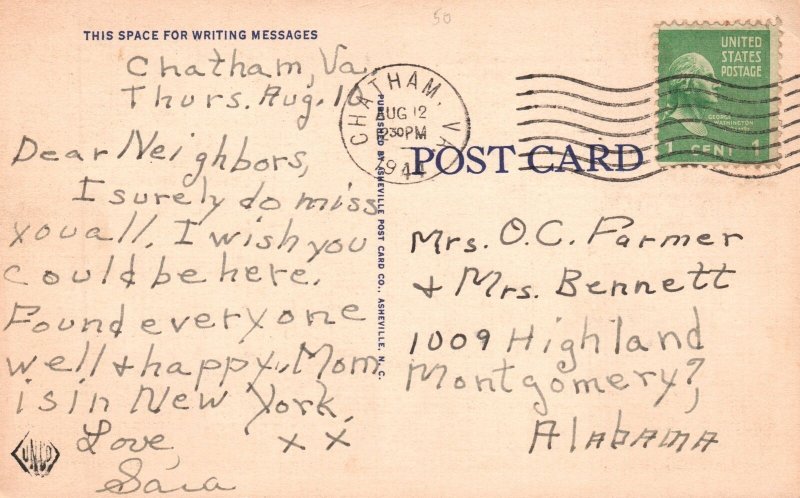 50
THIS SPACE FOR WRITING MESSAGES
Chatham, Va.
Thurs. Aug. 1
Dear Neighbors,
I surely do miss
you all. I wish you
could be here.
Found everyone
well & happy. Mom
is in New York.
Love, x x
Sara
PUBLISHED BY ASHEVILLE POST CARD CO., ASHEVILLE, N. C.
CHATHAM, VA.
AUG 12
230PM
1944
POST CARD
UNITED
STATES
POSTAGE
GEORGE
WASHINGTON
1 CENT 1
Mrs. O.C. Farmer
& Mrs. Bennett
1009 Highland
Montgomery 7,
Alabama